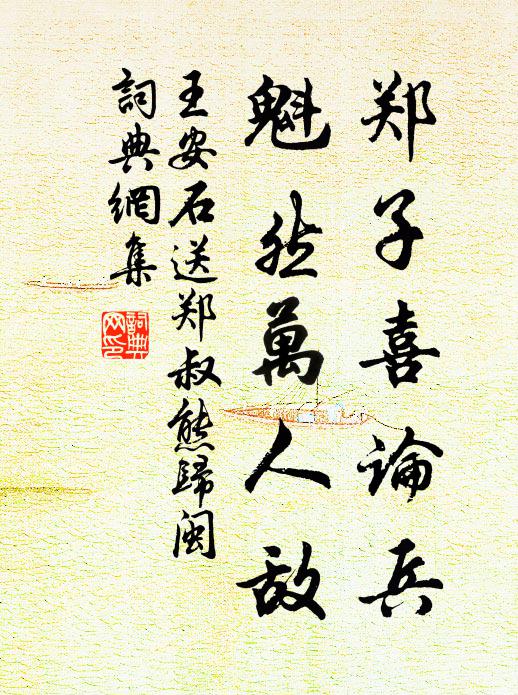 郑子喜論兵
魁然萬人敌
王安石送郑叔熊歸闽
詞典網集
詞典网印